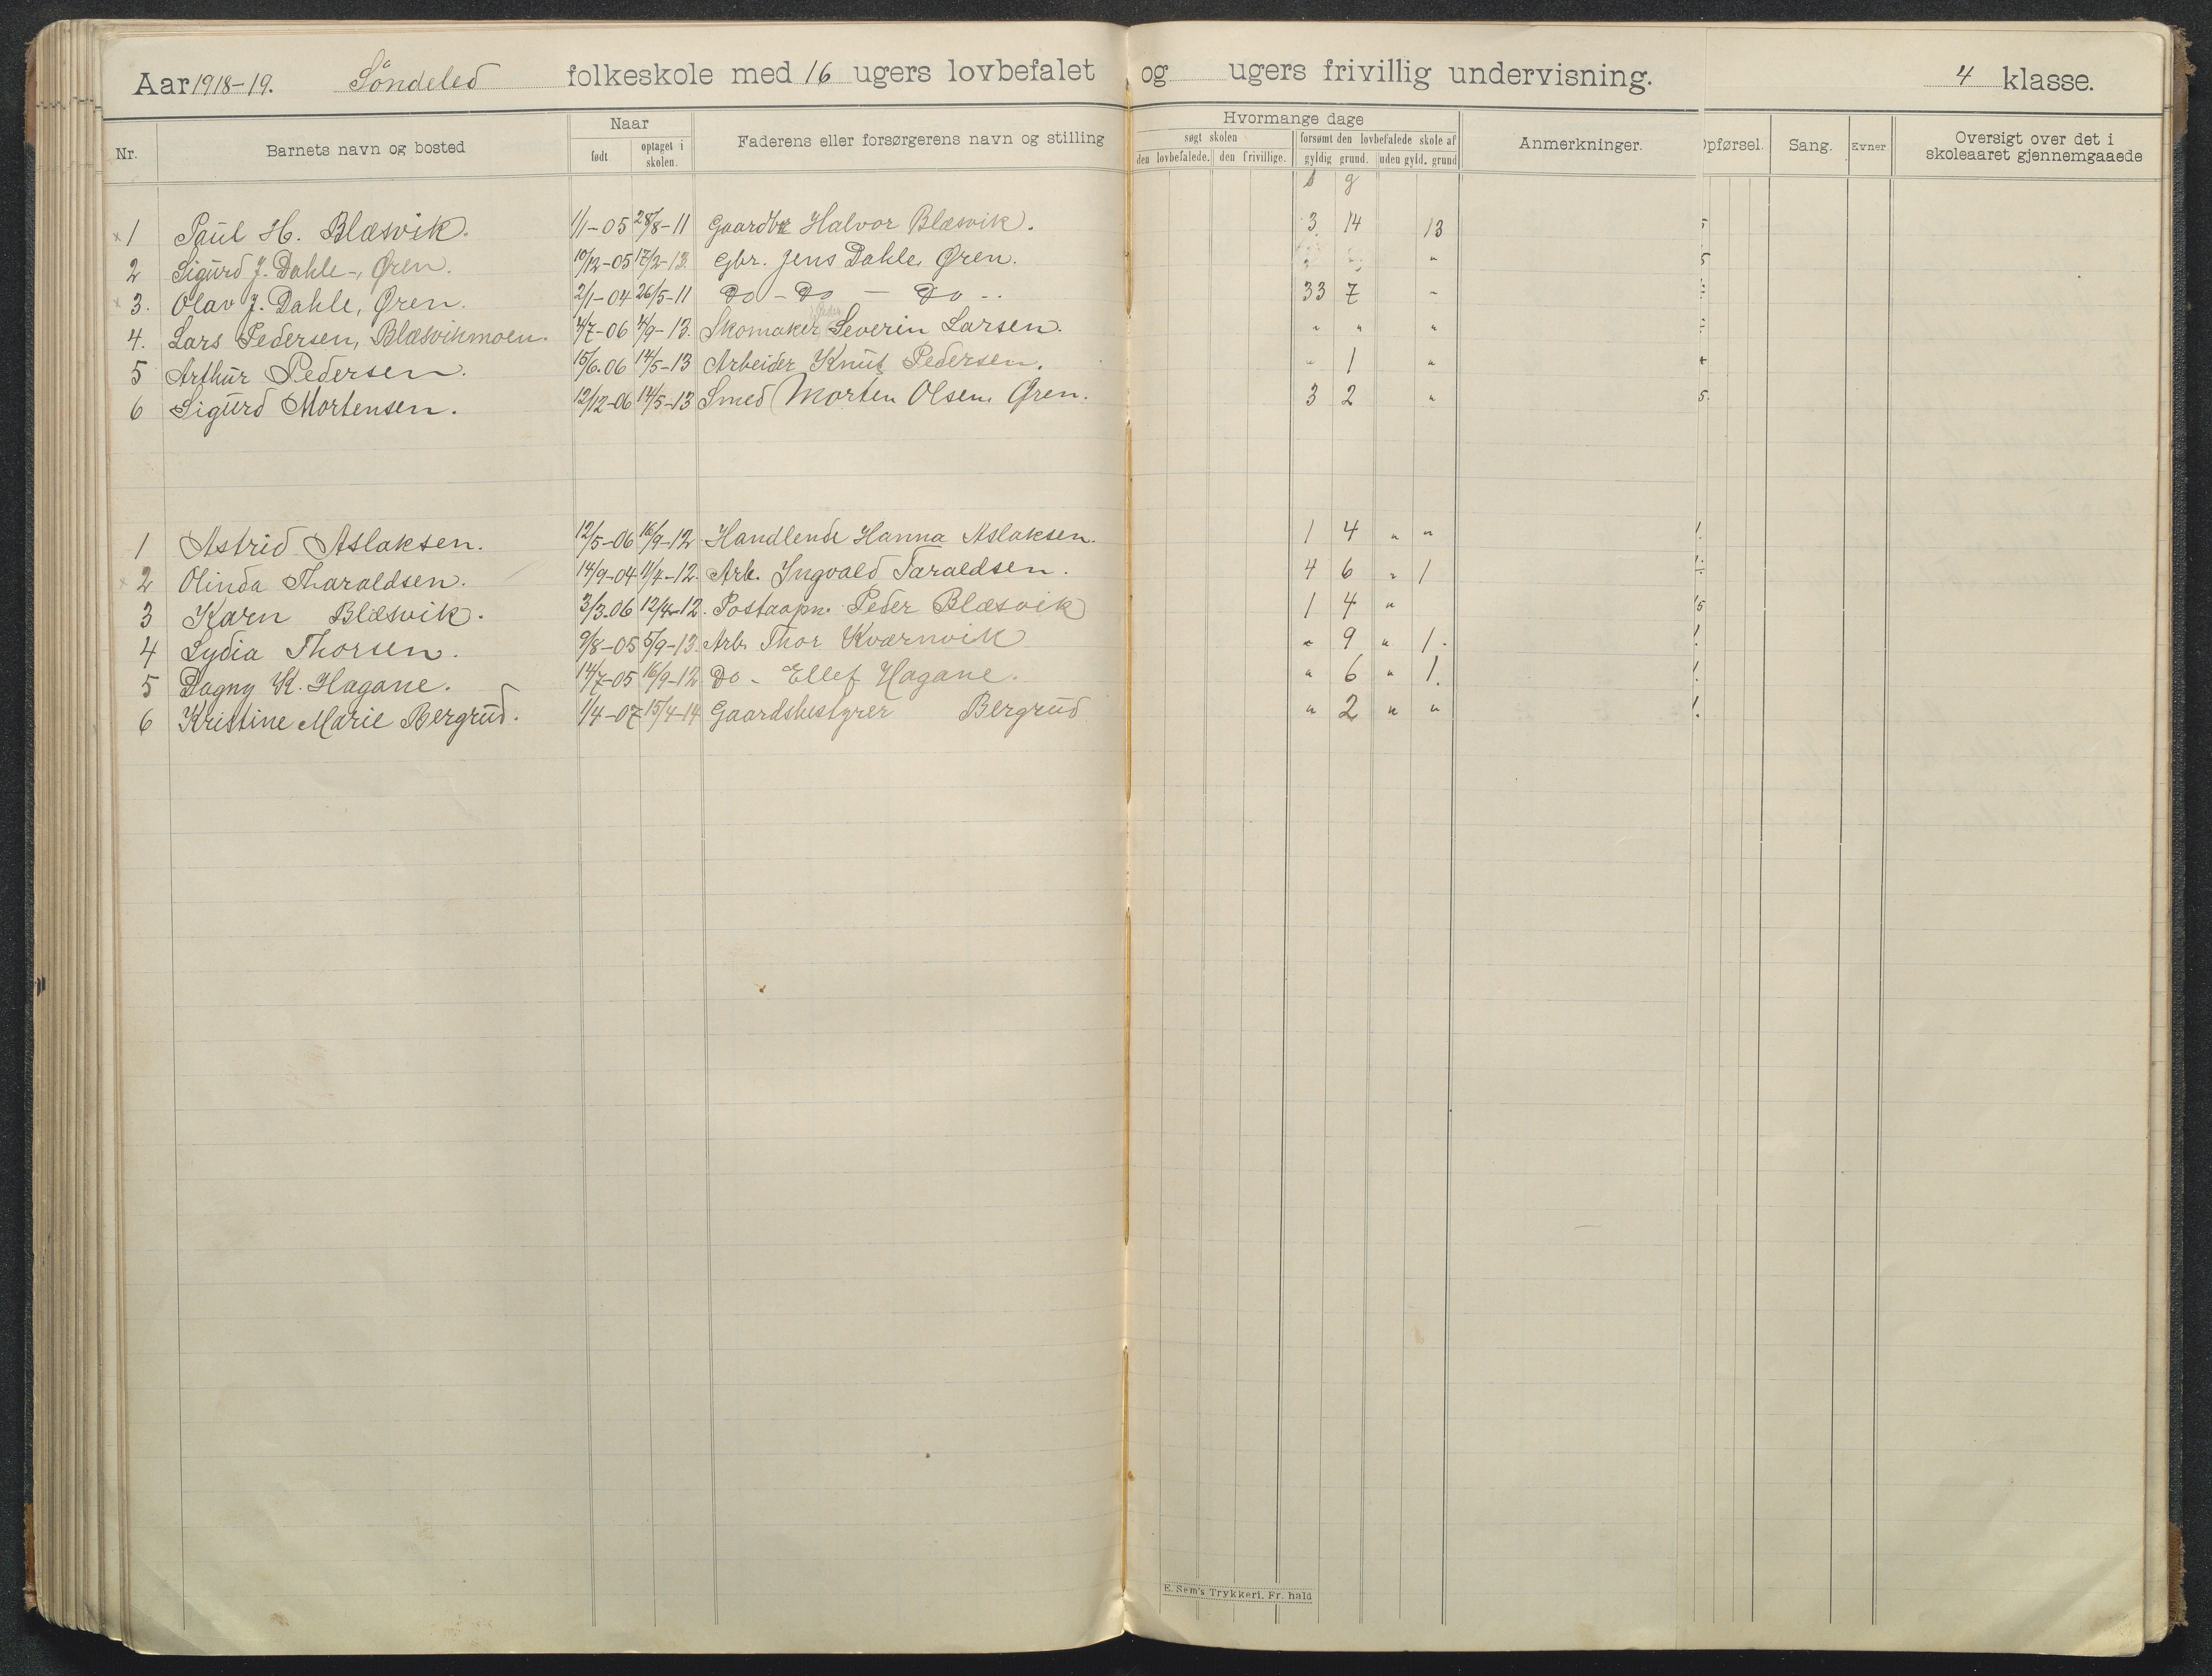 Aar 1918-19. Söndeled folkeskole med 16 ugers lovbefalet og ugers frivillig undervisning. 4 klasse.
Nr. Barnets navn og bosted Naar født optaget i skolen. Faderens eller forsørgerens navn og stilling Hvormange dage søgt skolen den lovbefalede. den frivillige. forsømt den lovbefalede skole af gyldig grund. uden gyld. grund Anmerkninger. Opførsel. Sang. Evner Oversigt over det i skoleaaret gjennemgaaede
s g
x 1 Paul H. Blæsvik. 1/1-05 28/8-11 Gaardbr. Halvor Blæsvik. 3 14 13 5
2 Sigurd J. Dahle, Øren. 10/12-05 17/2-13. Gbr. Jens Dahle, Øren. " 5
x 3. Olav J. Dahle, Øren. 2/1-04 26/5-11 Do - Do - Do - 33 7 "
4. Lars Pedersen, Blæsvikmoen. 4/7-06 4/9-13. Skomaker Severin Larsen. " " "
5 Arthur Pedersen. 15/6.06 14/5-13 Arbeider Knut Pedersen. " 1 "
6 Sigurd Mortensen. 12/12-06 14/5-13 Smed Morten Olsen, Øren. 3 2 " 5.
1 Astrid Aslaksen. 12/5-06 16/9-12 Handlende Hanna Aslaksen. 1 4 " " 1.
x 2 Olinda Tharaldsen. 14/9-04 11/4-12. Arb. Ingvald Taraldsen. 4 6 " 1
3 Karn Blæsvik. 3/3.06 12/4-12. Postaapn. Peder Blæsvik 1 4 " 15
4 Lydia Thorsen. 9/8-05 5/9-13. Arb. Thor Kværnvik " 9 " 1. 1.
5 Dagny K. Hagane. 14/7-05 16/9-12 Do - Ellef Hagane. " 6 " 1. 1.
6 Kristine Marie Bergrud. 1/4-07 15/4-14 Gaardsbestyrer Bergrud " 2 " " 1.
E. Sem's Trykkeri, Fr. hald